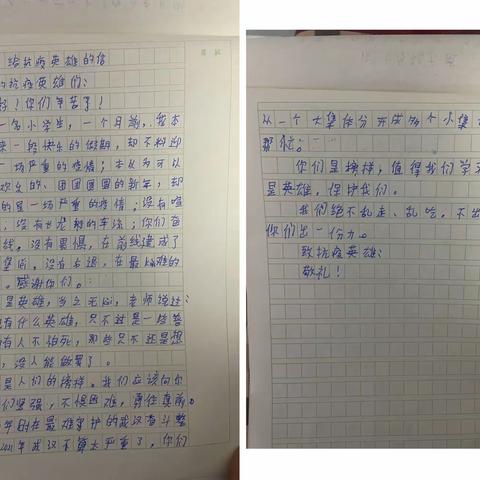 给抗疫英雄的信
的抗疫英雄们：
好！你们辛苦了！
一名小学生，一个月前，我本
来一段快乐的假期，却不料迎
一场严重的疫情；本以为可以
欢乐的、团团圆圆的新年，却
的是一场严重的疫情；没有喧
，没有如龙般的车流；你们奋
线。没有畏惧，在前线建成了
堡垒，没有后退，在最艰难的
。感谢你们。
是英雄，当之无愧，老师说过：
有什么英雄，只不过是一些普
有人不怕死，那些只不过是想
，没人能做罢了。
是人们的榜样。我们应该向你
们坚强，不惧困难，勇往直前。
年刚在最难守护的武汉奋斗整
年武汉不算太严重了，你们
从一个大集体分开成多个小集
帮忙；……
你们是榜样，值得我们学习
是英雄，保护我们。
我们绝不乱走、乱吃，不出
你们出一份力。
致抗疫英雄：
敬礼！